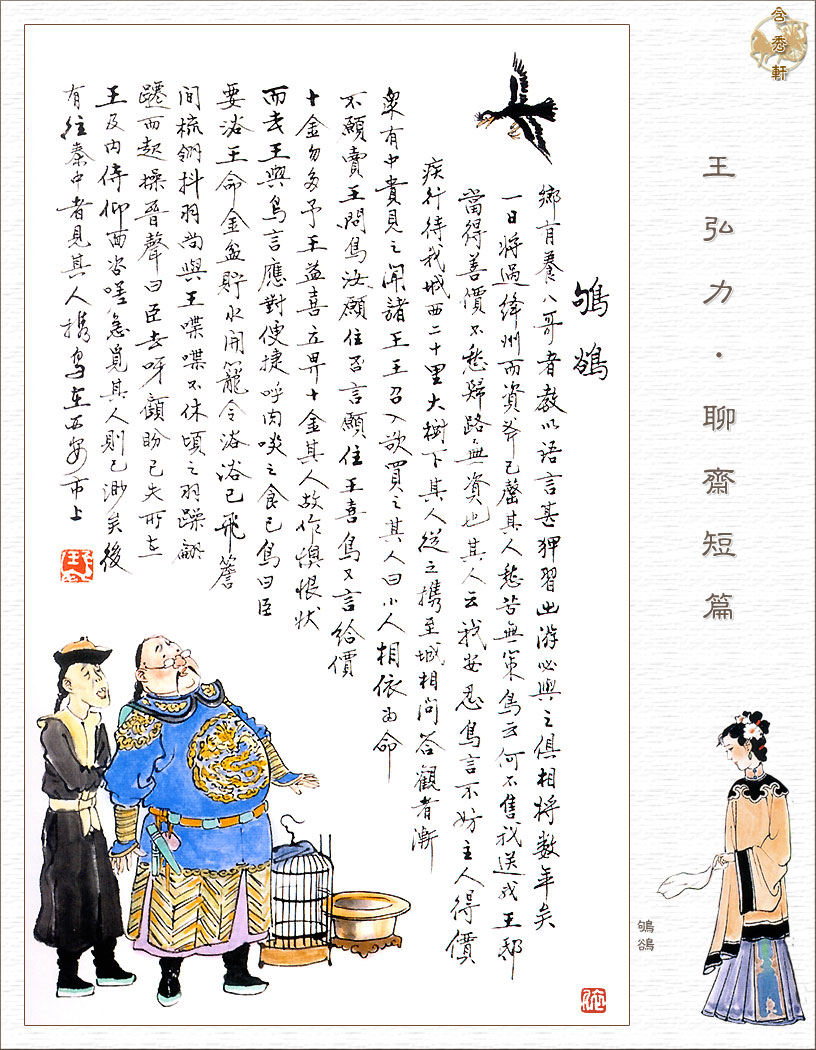 含秀軒
王弘力·聊齋短篇
鴝鵒
鄉有養八哥者教以語言甚狎習出游必與之俱相将数年矣
一日将過绛州而資斧已罄其人愁苦無策鳥云何不售我送我王邸
當得善價不愁歸路無資也其人云我安忍鳥言不妨主人得價
疾行待我城西二十里大樹下其人從之携至城相问答觀者漸
衆有中貴見之聞諸王王召入欲買之其人曰小人相依为命
不願賣王問鳥汝願住否言願住王喜鳥又言給價
十金勿多予王益喜立畀十金其人故作懊恨状
而去王與鳥言應對便捷呼肉啖之食已鳥曰臣
要浴王命金盆貯水開籠令浴浴已飛簷
间梳翎抖羽尚與王喋喋不休頃之羽躁翩
躚而起操晉聲曰臣去呀顧盼已失所在
王及内侍仰面咨嗟急覓其人則已渺矣後
有往秦中者見其人携鳥在西安市上
鴝鵒